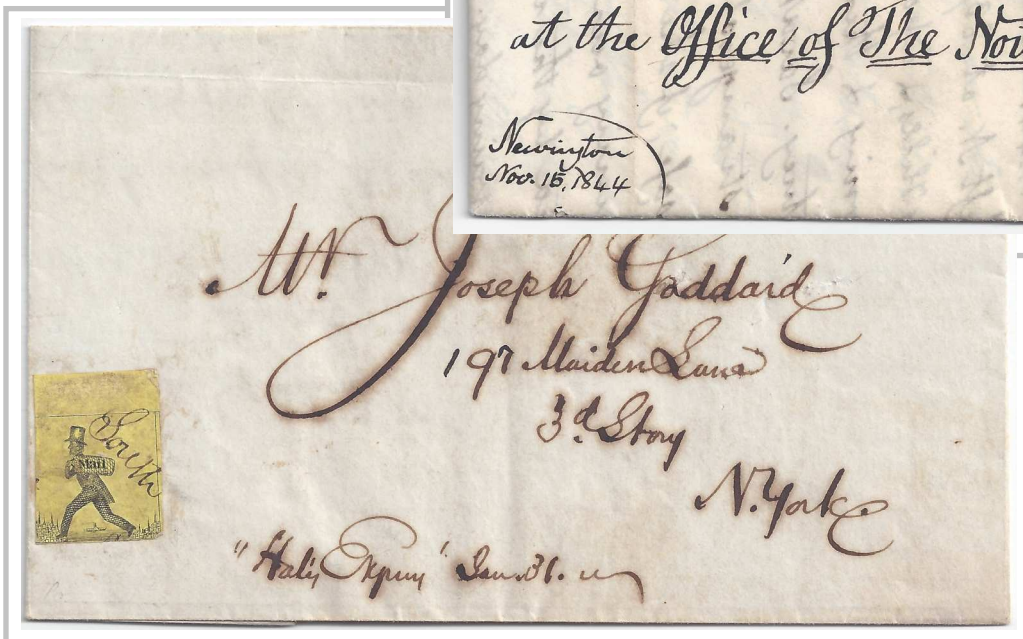 at the Office of The Nov
Newington
Nov. 15, 1844
Mr. Joseph Goddard
197 Maiden Lane
3d Story
N. York
South
Mail
"Hale's Express" Jan. 31.